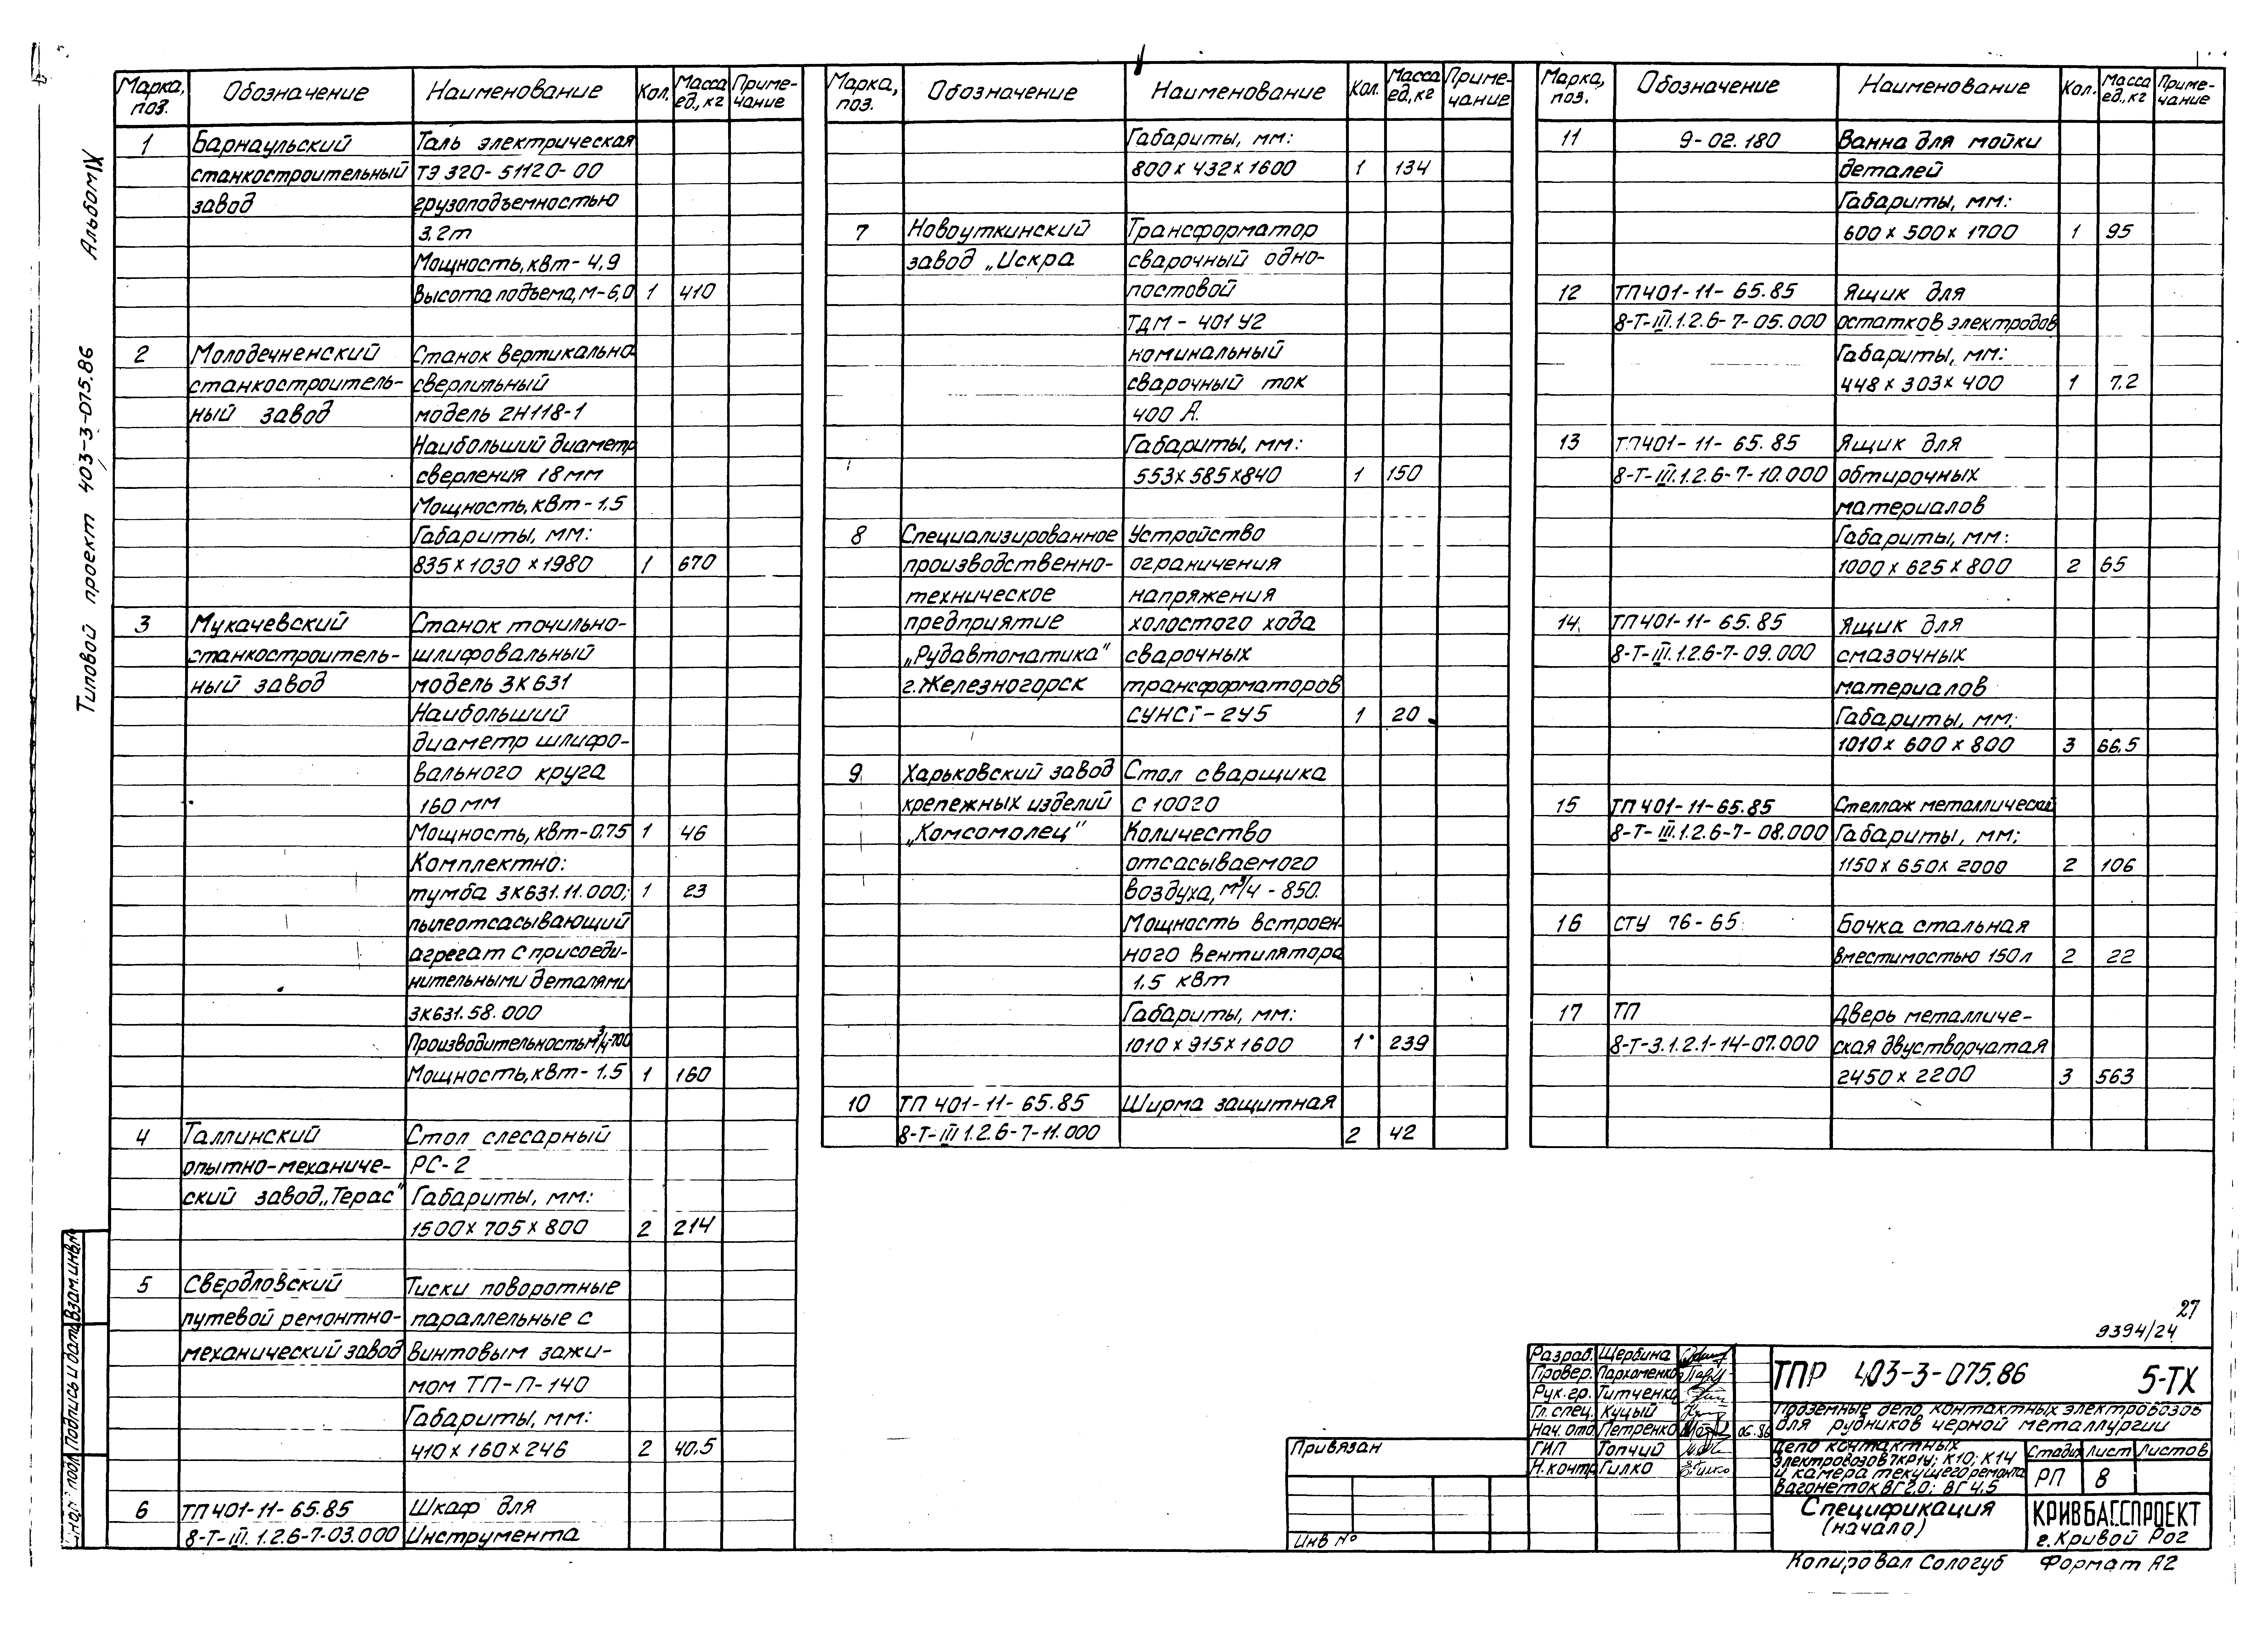 Альбом IX
Типовой проект 403-3-075.86
Марка, поз. Обозначение Наименование Кол. Масса ед., кг Приме-чание
1 Барнаульский Таль электрическая
станкостроительный ТЭ 320-51120-00
завод грузоподъемностью
3,2т
Мощность, квт-4,9
Высота подъема, м-6,0 1 410
2 Молодечненский Станок вертикально
станкостроитель- сверлильный
ный завод модель 2Н118-1
Наибольший диаметр
сверления 18 мм
Мощность, квт-1,5
Габариты, мм:
835 х 1030 х 1980 1 670
3 Мукачевский Станок точильно-
станкостроитель- шлифовальный
ный завод модель 3К631
Наибольший
диаметр шлифо-
вального круга
160 мм
Мощность, квт-0.75 1 46
Комплектно:
тумба 3К631.11.000; 1 23
пылеотсасывающий
агрегат с присоеди-
нительными деталями
3К631.58.000
Производительность м³/ч-700
Мощность, квт-1.5 1 160
4 Таллинский Стол слесарный
опытно-механиче- РС-2
ский завод „Терас" Габариты, мм:
1500 х 705 х 800 2 214
5 Свердловский Тиски поворотные
путевой ремонтно- параллельные с
механический завод винтовым зажи-
мом ТП-П-140
Габариты, мм:
410 х 160 х 246 2 40.5
6 ТП 401-11-65.85 Шкаф для
8-Т-III.1.2.6-7-03.000 Инструмента
Марка, поз. Обозначение Наименование Кол. Масса ед., кг Приме-чание
Габариты, мм:
800 х 432 х 1600 1 134
7 Новоуткинский Трансформатор
завод „Искра сварочный одно-
постовой
ТДМ-401У2
номинальный
сварочный ток
400 А.
Габариты, мм:
553 х 585 х 840 1 150
8 Специализированное Устройство
производственно- ограничения
техническое напряжения
предприятие холостого хода
„Рудавтоматика" сварочных
г.Железногорск трансформаторов
СУНСГ-2У5 1 20
9 Харьковский завод Стол сварщика
крепежных изделий С 10020
„Комсомолец" Количество
отсасываемого
воздуха, м³/ч - 850.
Мощность встроен-
ного вентилятора
1,5 квт
Габариты, мм:
1010 х 915 х 1600 1 239
10 ТП 401-11-65.85 Ширма защитная
8-Т-III 1.2.6-7-11.000 2 42
Марка, поз. Обозначение Наименование Кол. Масса ед., кг Приме-чание
11 9-02.180 Ванна для мойки
деталей
Габариты, мм:
600 х 500 х 1700 1 95
12 ТП401-11-65.85 Ящик для
8-Т-III.1.2.6-7-05.000 остатков электродов
Габариты, мм:
448 х 303 х 400 1 7.2
13 ТП401-11-65.85 Ящик для
8-Т-III.1.2.6-7-10.000 обтирочных
материалов
Габариты, мм:
1000 х 625 х 800 2 65
14 ТП401-11-65.85 Ящик для
8-Т-III.1.2.6-7-09.000 смазочных
материалов
Габариты, мм:
1010 х 600 х 800 3 66.5
15 ТП 401-11-65.85 Стеллаж металлический
8-Т-III.1.2.6-7-08.000 Габариты, мм:
1150 х 650 х 2000 2 106
16 СТУ 76-65 Бочка стальная
вместимостью 150л 2 22
17 ТП Дверь металличе-
8-Т-3.1.2.1-14-07.000 ская двустворчатая
2450 х 2200 3 563
27
9394/24
Разраб. Щербина
Провер. Пархоменко
Рук.гр. Титченко
Гл.спец. Куцый
Нач. отд Петренко 06.86
ГИП Топчий
Н.контр Гилко
ТПР 403-3-075.86 5-ТХ
Подземные депо контактных электровозов
для рудников черной металлургии
Депо контактных
электровозов 7КР1У; К10; К14
и камера текущего ремонта
вагонеток ВГ2,0; ВГ4,5
Стадия Лист Листов
РП 8
Спецификация
(начало)
КРИВБАССПРОЕКТ
г. Кривой Рог
Привязан
Инв №
Копировал Сологуб Формат А2
Взам.инв.№
Подпись и дата
Инв.№ подл